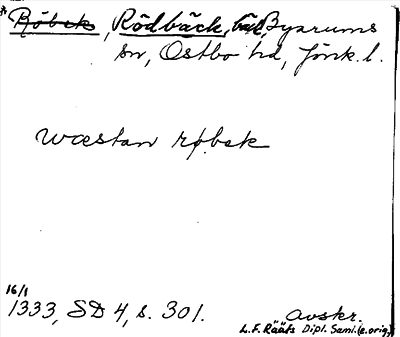 Röbek, Rödbäck, bäck, Byarums
sn, Östbo hd, Jönk. l.
wæstan røbek
16/1
1333, SD 4, s. 301. avskr.
L.F. Rääfs Dipl. Saml. (e. orig.)